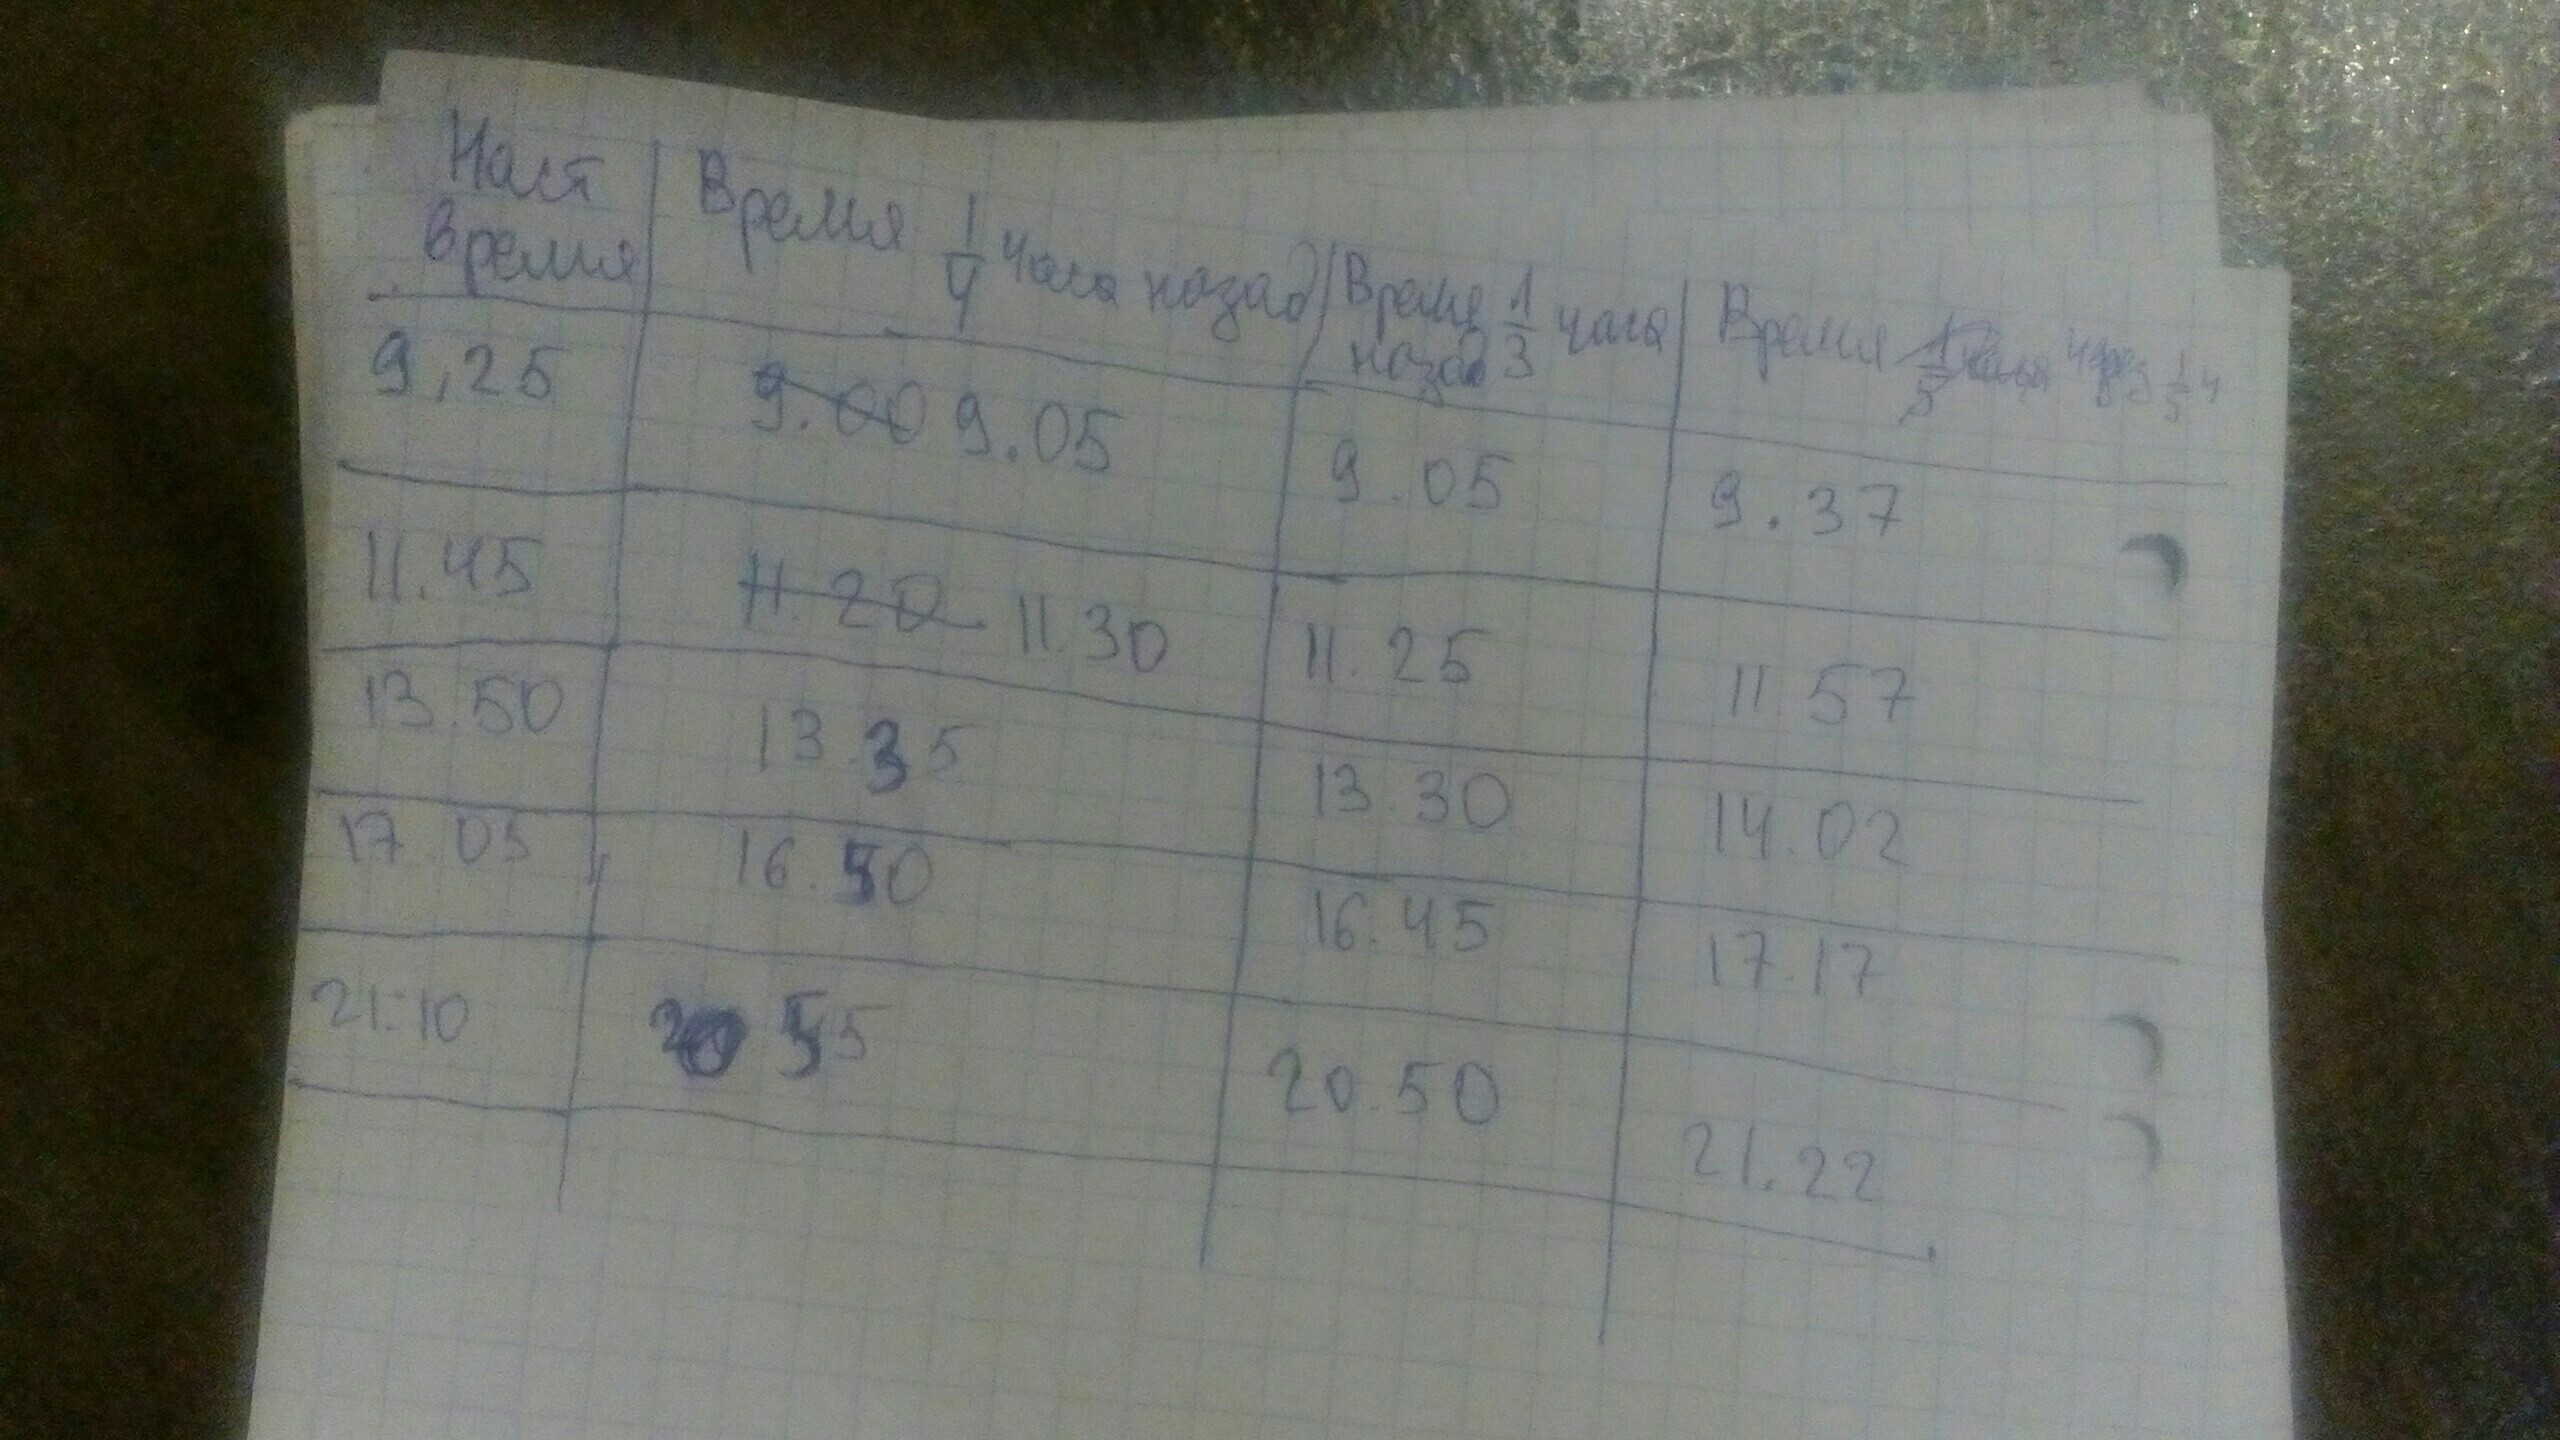 Наст время | Время 1/4 часа назад | Время 1/3 часа назад | Время через 1/5 ч
9,25 | 9.00 9.05 | 9.05 | 9.37
11.45 | 11.20 11.30 | 11.25 | 11 57
13.50 | 13.35 | 13.30 | 14.02
17.05 | 16.50 | 16.45 | 17.17
21.10 | 20 55 | 20.50 | 21.22